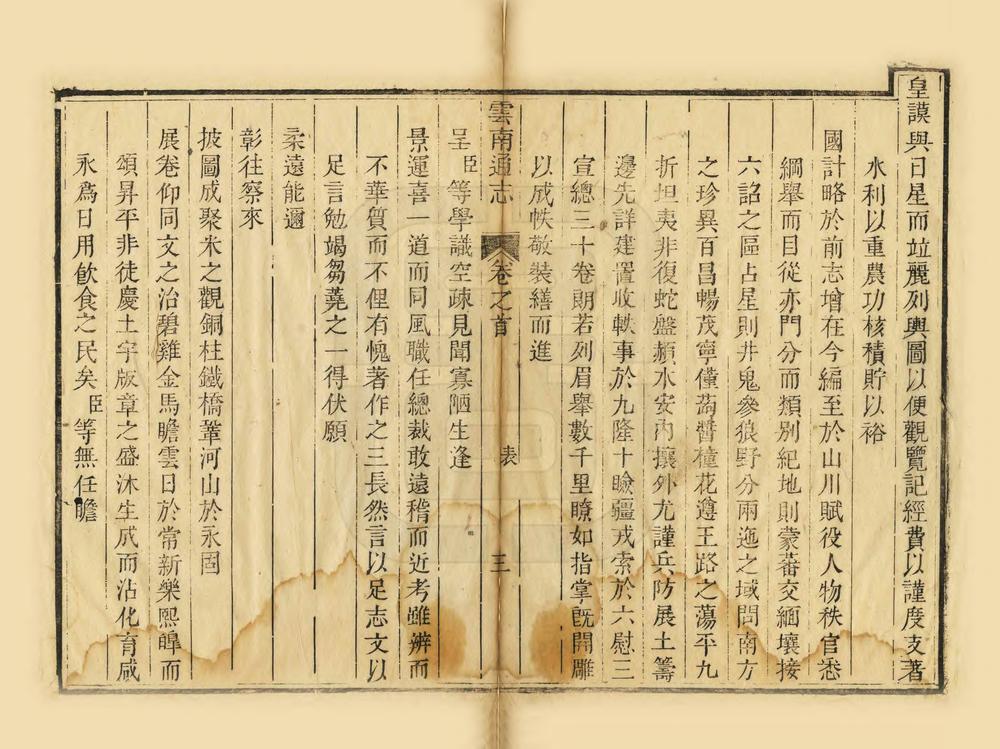 皇謨與日星而竝麗列輿圖以便觀覽記經費以謹度支著
水利以重農功核積貯以裕
國計略於前志增在今編至於山川賦役人物秩官悉
綱舉而目從亦門分而類別紀地則蒙蕃交緬壤接
六詔之區占星則井鬼參狼野分兩迤之域問南方
之珍異百昌暢茂寧僅蒟醬橦花遵王路之蕩平九
折坦夷非復蛇盤蘋水安內攘外尤謹兵防展土籌
邊先詳建置收軼事於九隆十瞼疆戎索於六慰三
宣總三十卷朗若列眉舉數千里瞭如指掌旣開雕
以成帙敬裝繕而進
雲南通志 卷之首 表 三
呈臣等學識空疎見聞寡陋生逢
景運喜一道而同風職任總裁敢遠稽而近考雖辨而
不華質而不俚有愧著作之三長然言以足志文以
足言勉竭芻蕘之一得伏願
柔遠能邇
彰往察來
披圖成聚米之觀銅柱鐵橋鞏河山於永固
展卷仰同文之治碧雞金馬瞻雲日於常新樂熙皥而
頌昇平非徒慶土宇版章之盛沐生成而沾化育咸
永爲日用飮食之民矣臣等無任瞻